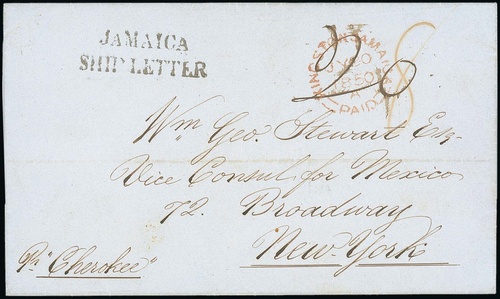 JAMAICA
SHIP LETTER
KINGSTON JAMAICA
1850
A
PAID
Wm. Geo. Stewart Esq
Vice Consul for Mexico
72. Broadway
New-York
Pr "Cherokee"